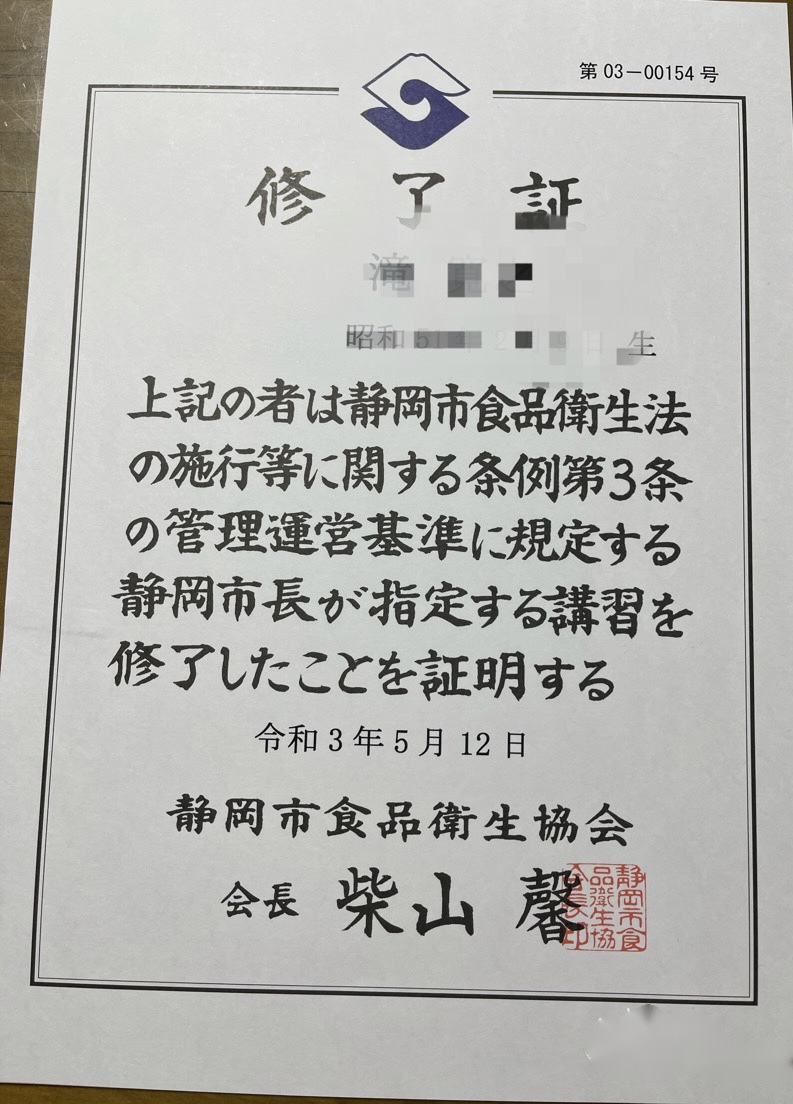 第03－00154号
修了証
昭和 生
上記の者は静岡市食品衛生法
の施行等に関する条例第3条
の管理運営基準に規定する
静岡市長が指定する講習を
修了したことを証明する
令和3年5月12日
静岡市食品衛生協会
会長 柴山 馨
静岡市食
品衛生協
会長印